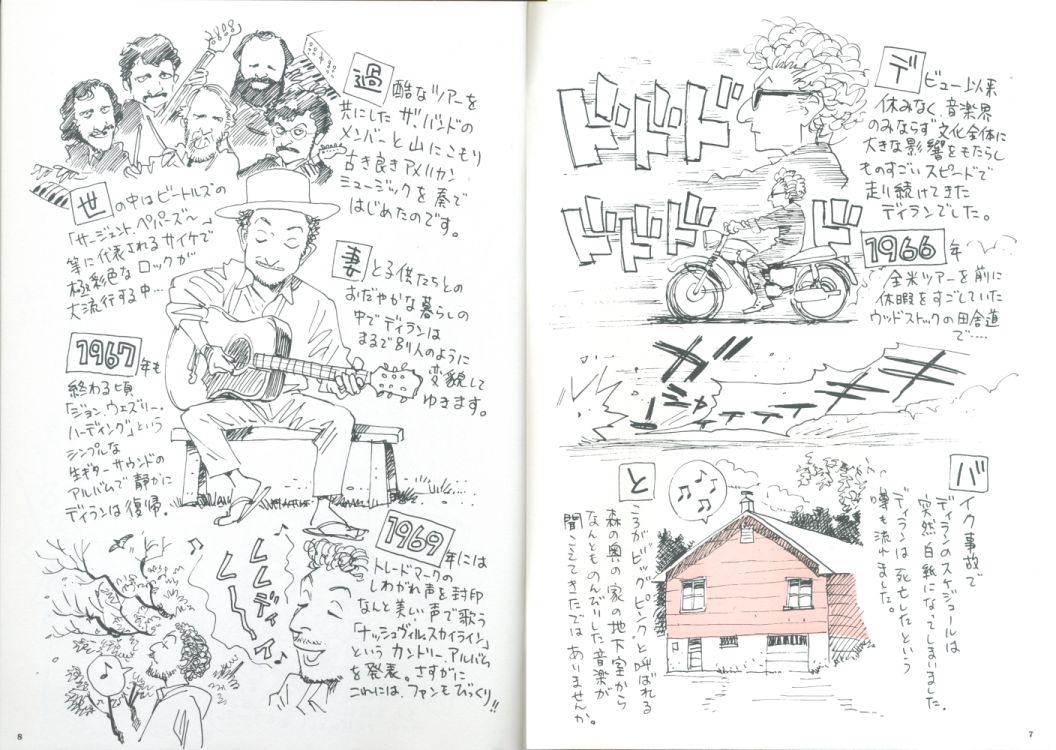 デビュー以来
休みなく、音楽界
のみならず文化全体に
大きな影響をもたらし
ものすごいスピードで
走り続けてきた
ディランでした。
ドドドド
ドドドド
1966年
全米ツアーを前に
休暇をすごしていた
ウッドストックの田舎道
で‥‥
ガシャーィィィキキ
バイク事故で
ディランのスケジュールは
突然白紙になってしまいました。
ディランは死亡したという
噂も流れました。
ところがビッグピンクと呼ばれる
森の奥の家の地下室から
なんとものんびりした音楽が
聞こえてきたではありませんか。
7
過酷なツアーを
共にしたザ・バンドの
メンバーと山にこもり
古き良きアメリカン
ミュージックを奏で
はじめたのです。
世の中はビートルズの
「サージェント、ペパーズ〜」
等に代表されるサイケで
極彩色なロックが
大流行する中…
妻と子供たちとの
おだやかな暮らしの
中でディランは
まるで別人のように
変貌して
ゆきます。
1967年も
終わる頃
「ジョン、ウェズリー、
ハーディング」という
シンプルな
生ギターサウンドの
アルバムで静かに
ディランは復帰。
1969年には
トレードマークの
しわがれ声を封印
なんと美しい声で歌う
「ナッシュヴィルスカイライン」
というカントリーアルバム
を発表。さすがに
これには、ファンもびっくり!!
レレディ〜イ
レ〜
8